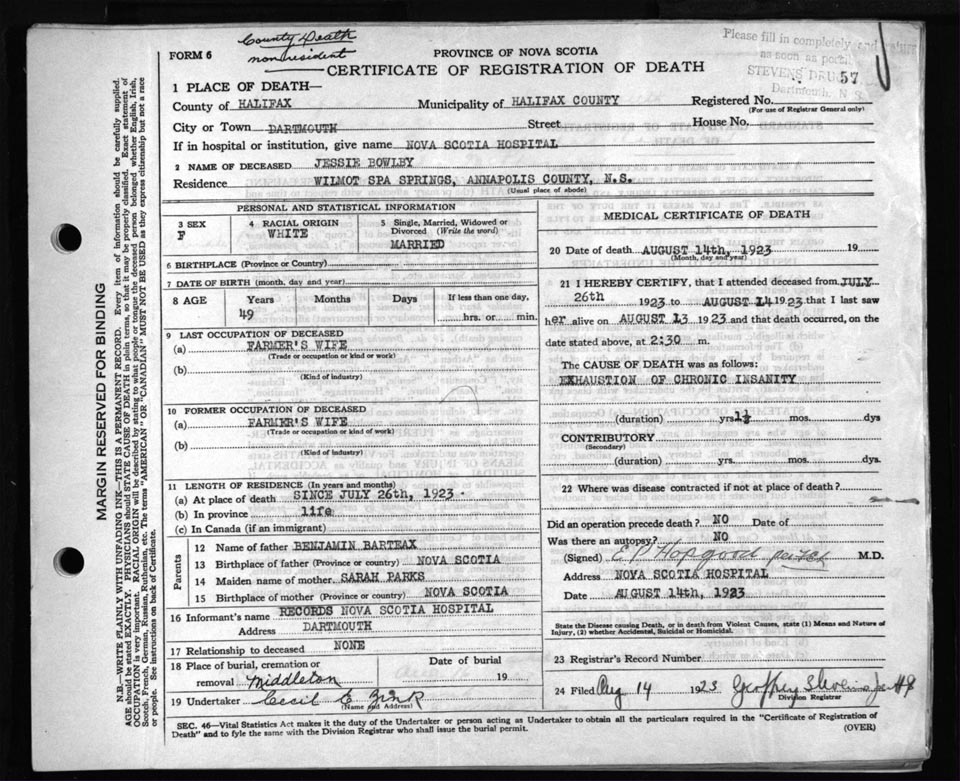 County Death
FORM 6 nonresident PROVINCE OF NOVA SCOTIA
Please fill in completely and
as soon as
STEVENS DRUG
Dartmouth, N.S.
57
CERTIFICATE OF REGISTRATION OF DEATH
1 PLACE OF DEATH—
County of HALIFAX Municipality of HALIFAX COUNTY Registered No.
(For use of Registrar General only)
City or Town DARTMOUTH Street House No.
If in hospital or institution, give name NOVA SCOTIA HOSPITAL
2 NAME OF DECEASED JESSIE BOWLBY
Residence WILMOT SPA SPRINGS, ANNAPOLIS COUNTY, N.S.
(Usual place of abode)
PERSONAL AND STATISTICAL INFORMATION
3 SEX 4 RACIAL ORIGIN 5 Single, Married, Widowed or
Divorced (Write the word)
F WHITE MARRIED
6 BIRTHPLACE (Province or Country)
7 DATE OF BIRTH (month, day and year)
8 AGE Years Months Days If less than one day,
49 hrs. or min.
9 LAST OCCUPATION OF DECEASED
(a) FARMER'S WIFE
(Trade or occupation or kind or work)
(b)
(Kind of industry)
10 FORMER OCCUPATION OF DECEASED
(a) FARMER'S WIFE
(Trade or occupation or kind of work)
(b)
(Kind of industry)
11 LENGTH OF RESIDENCE (In years and months)
(a) At place of death SINCE JULY 26th, 1923.
(b) In province life
(c) In Canada (if an immigrant)
Parents
12 Name of father BENJAMIN BARTEAX
13 Birthplace of father (Province or country) NOVA SCOTIA
14 Maiden name of mother SARAH PARKS
15 Birthplace of mother (Province or country) NOVA SCOTIA
16 Informant's name RECORDS NOVA SCOTIA HOSPITAL
Address DARTMOUTH
17 Relationship to deceased NONE
18 Place of burial, cremation or Date of burial
removal Middleton 19
19 Undertaker Cecil E. Zink
(Name and Address)
MEDICAL CERTIFICATE OF DEATH
20 Date of death AUGUST 14th, 1923 19
(Month, day and year)
21 I HEREBY CERTIFY, that I attended deceased from JULY
26th 1923 to AUGUST 14 1923 that I last saw
her alive on AUGUST 13 1923 and that death occurred, on the
date stated above, at 2:30 m.
The CAUSE OF DEATH was as follows:
EXHAUSTION OF CHRONIC INSANITY
(duration) yrs. mos. dys
CONTRIBUTORY
(Secondary)
(duration) yrs. mos. dys.
22 Where was disease contracted if not at place of death?
Did an operation precede death? NO Date of
Was there an autopsy? NO
(Signed) E P Hopgood M.D.
Address NOVA SCOTIA HOSPITAL
Date AUGUST 14th, 1923
State the Disease causing Death, or in death from Violent Causes, state (1) Means and Nature of
Injury, (2) whether Accidental, Suicidal or Homicidal.
23 Registrar's Record Number
24 Filed Aug 14 1923 Geoffrey Stevens
Division Registrar
SEC. 46—Vital Statistics Act makes it the duty of the Undertaker or person acting as Undertaker to obtain all the particulars required in the "Certificate of Registration of
Death" and to fyle the same with the Division Registrar who shall issue the burial permit. (OVER)
MARGIN RESERVED FOR BINDING
N.B.—WRITE PLAINLY WITH UNFADING INK—THIS IS A PERMANENT RECORD. Every item of information should be carefully supplied.
AGE should be stated EXACTLY. PHYSICIANS should STATE CAUSE OF DEATH in plain terms, so that it may be properly classified. Exact statement of
OCCUPATION is very important. RACIAL ORIGIN will be described by stating to what people or tongue the deceased person belonged whether English, Irish,
Scotch, French, German, Russian, Ruthenian, etc. The terms "AMERICAN" OR "CANADIAN" MUST NOT BE USED as they express citizenship but not a race
or people. See instructions on back of Certificate.